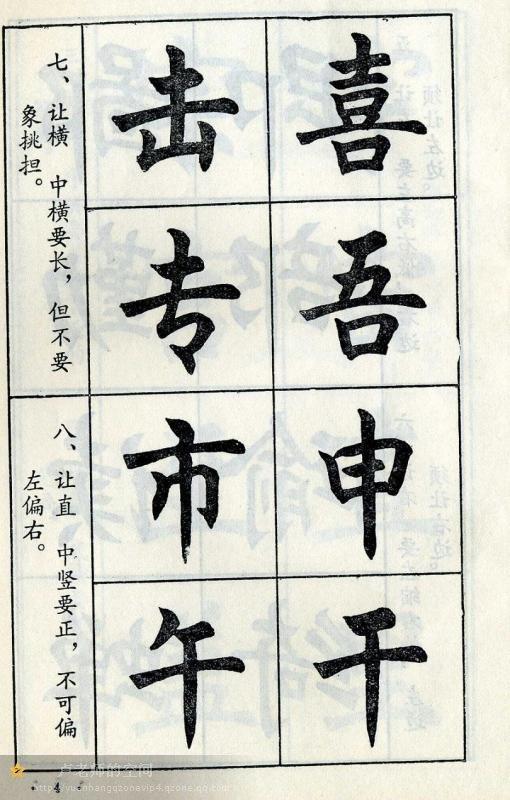 喜吾申干
击专市午
七、让横 中横要长，但不要
象挑担。
八、让直 中竖要正，不可偏
左偏右。
4
卢老师的空间